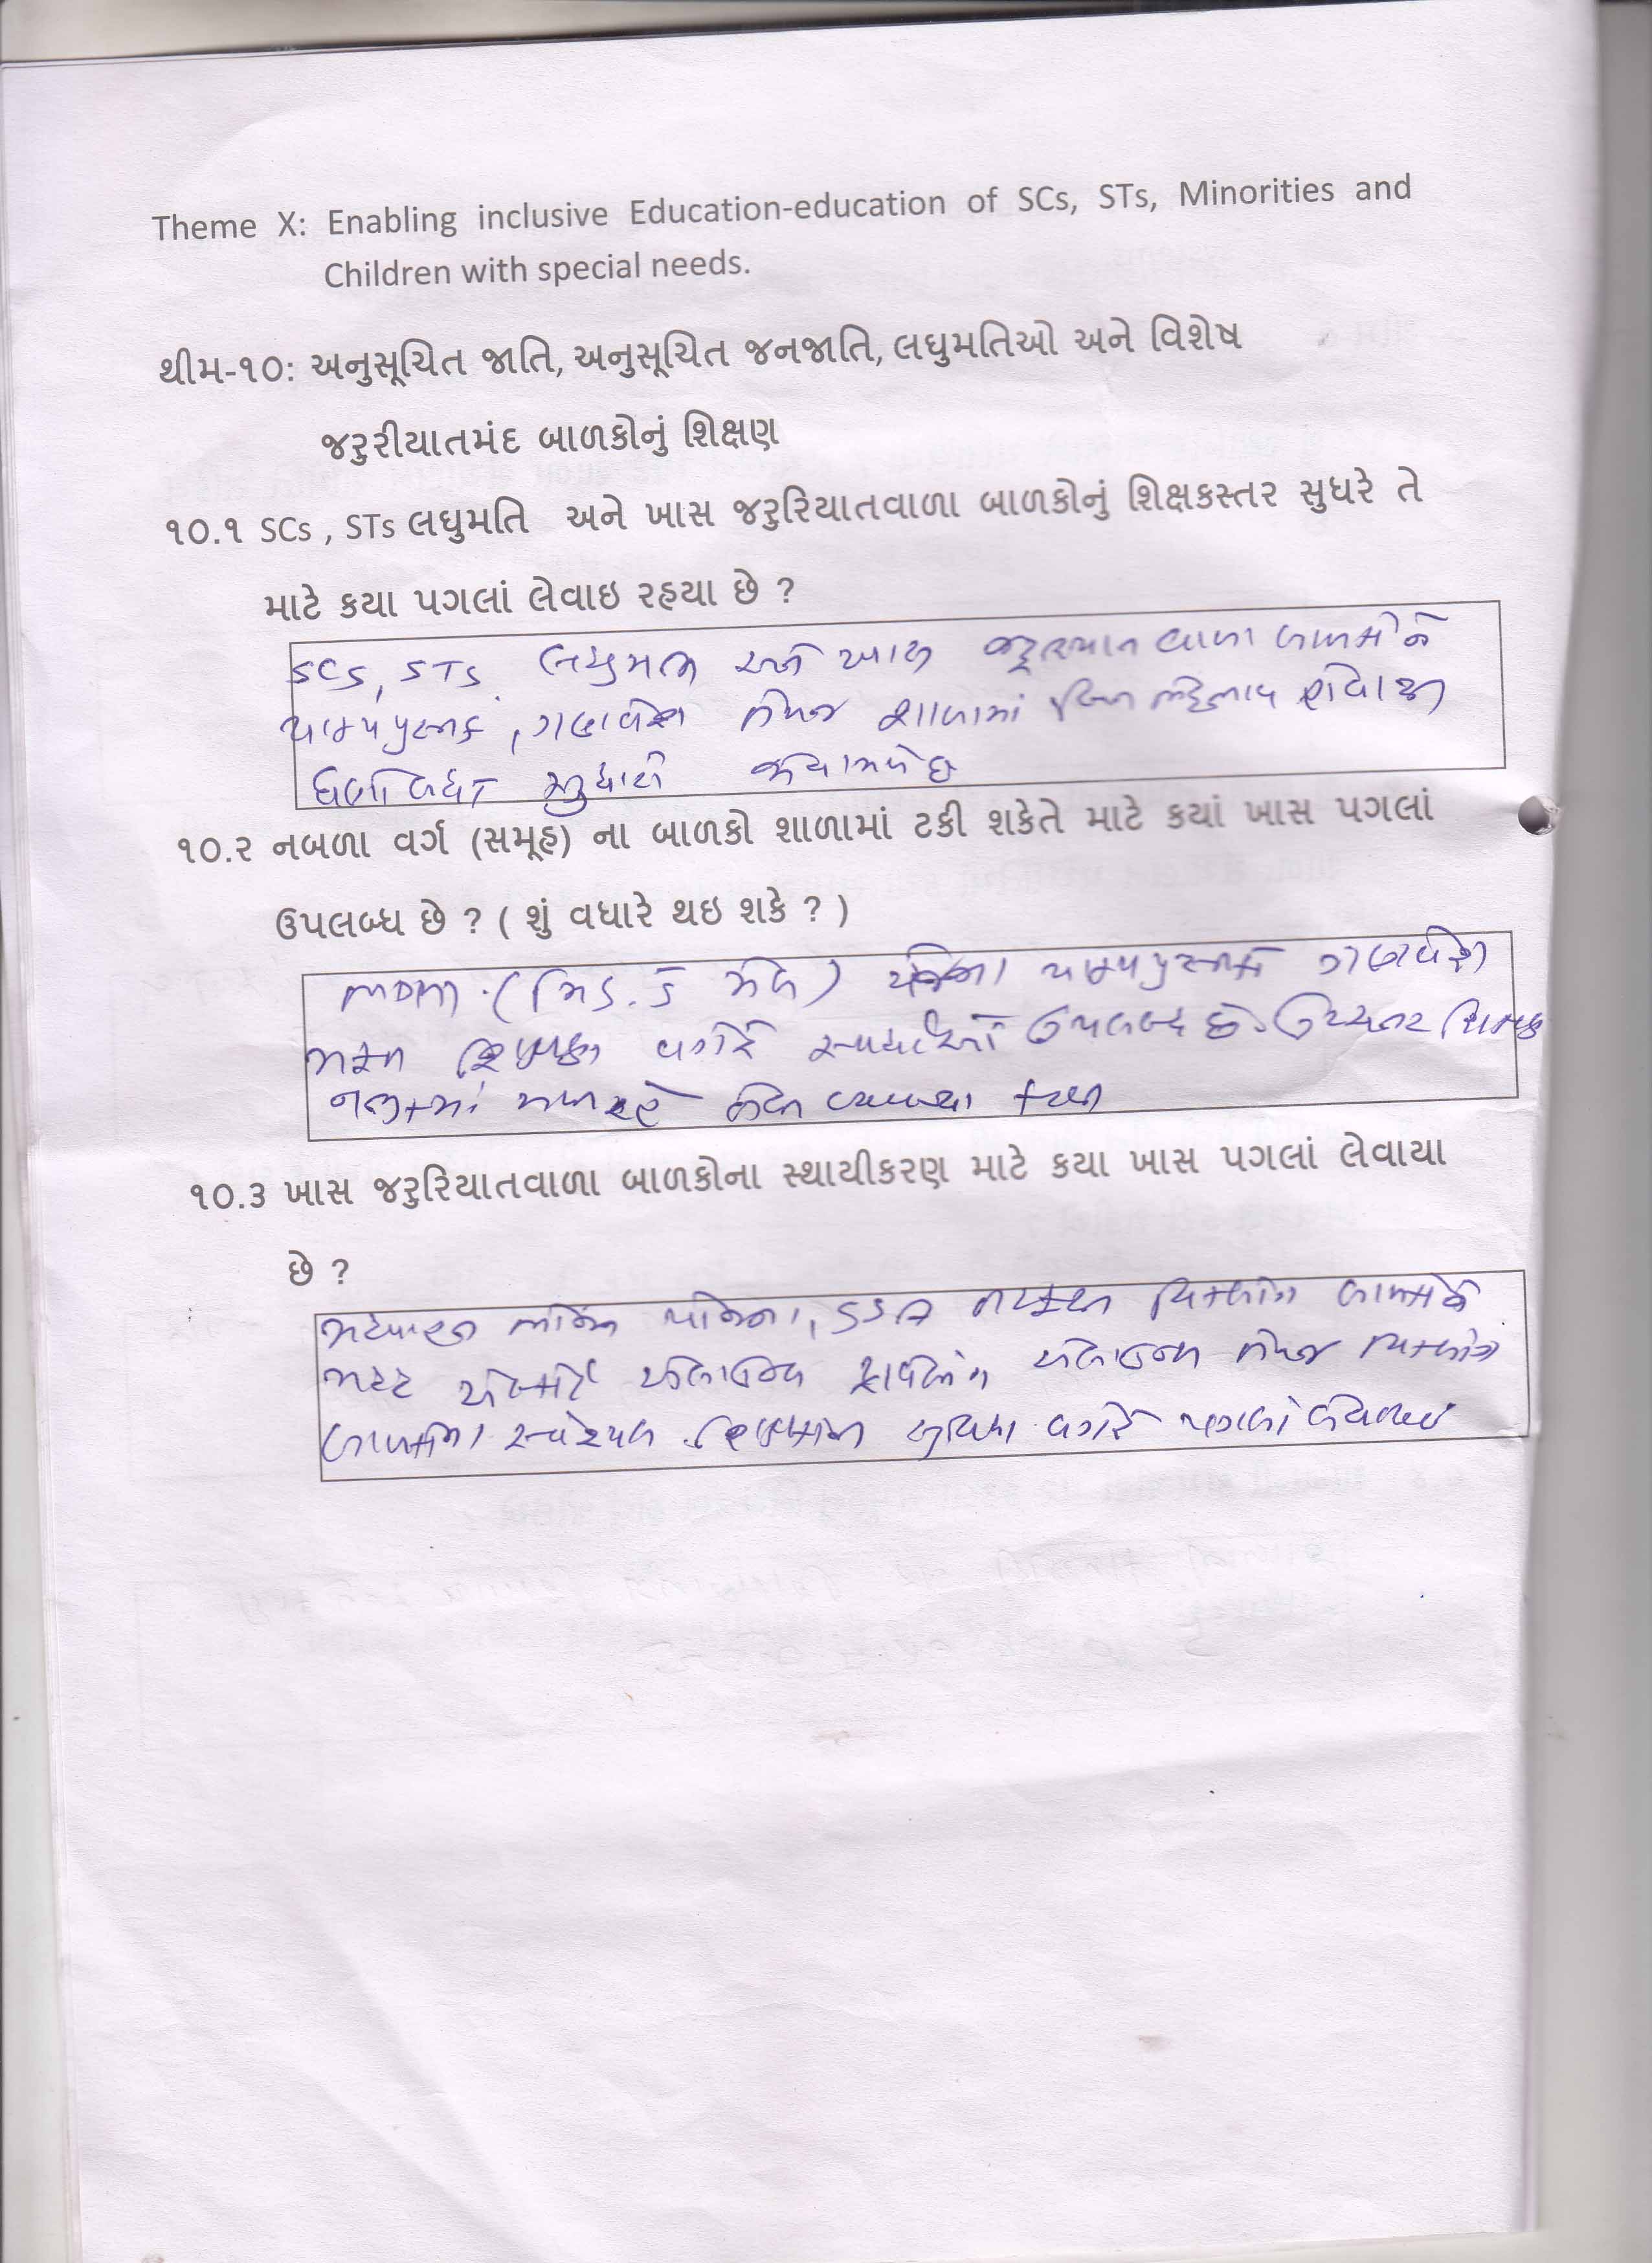 Theme X: Enabling inclusive Education-education of SCs, STs, Minorities and
Children with special needs.
થીમ-૧૦: અનુસૂચિત જાતિ, અનુસૂચિત જનજાતિ, લઘુમતિઓ અને વિશેષ
જરુરીયાતમંદ બાળકોનું શિક્ષણ
૧૦.૧ SCs , STs લઘુમતિ અને ખાસ જરુરિયાતવાળા બાળકોનું શિક્ષકસ્તર સુધરે તે
માટે કયા પગલાં લેવાઇ રહયા છે ?
SCS, STS લઘુમતી અને ખાસ જરૂરિયાત વાળા બાળકોને
પાઠ્યપુસ્તક, ગણવેશ તેમજ શાળામાં ભેદભાવ
સુધારો જોવા મળે છે
૧૦.૨ નબળા વર્ગ (સમૂહ) ના બાળકો શાળામાં ટકી શકેતે માટે કયાં ખાસ પગલાં
ઉપલબ્ધ છે ? ( શું વધારે થઇ શકે ? )
MDM (મિડ ડે મીલ) યોજના પાઠ્યપુસ્તકો ગણવેશ
મફત શિક્ષણ વગેરે ઉપલબ્ધ છે. ઉચ્ચતર
મળી રહે તેવી વ્યવસ્થા
૧૦.૩ ખાસ જરુરિયાતવાળા બાળકોના સ્થાયીકરણ માટે કયા ખાસ પગલાં લેવાયા
છે ?
મધ્યાહન ભોજન યોજના, SSA વિકલાંગ બાળકો
માટે તેમજ વિકલાંગ
બાળકોના વગેરે પગલાં